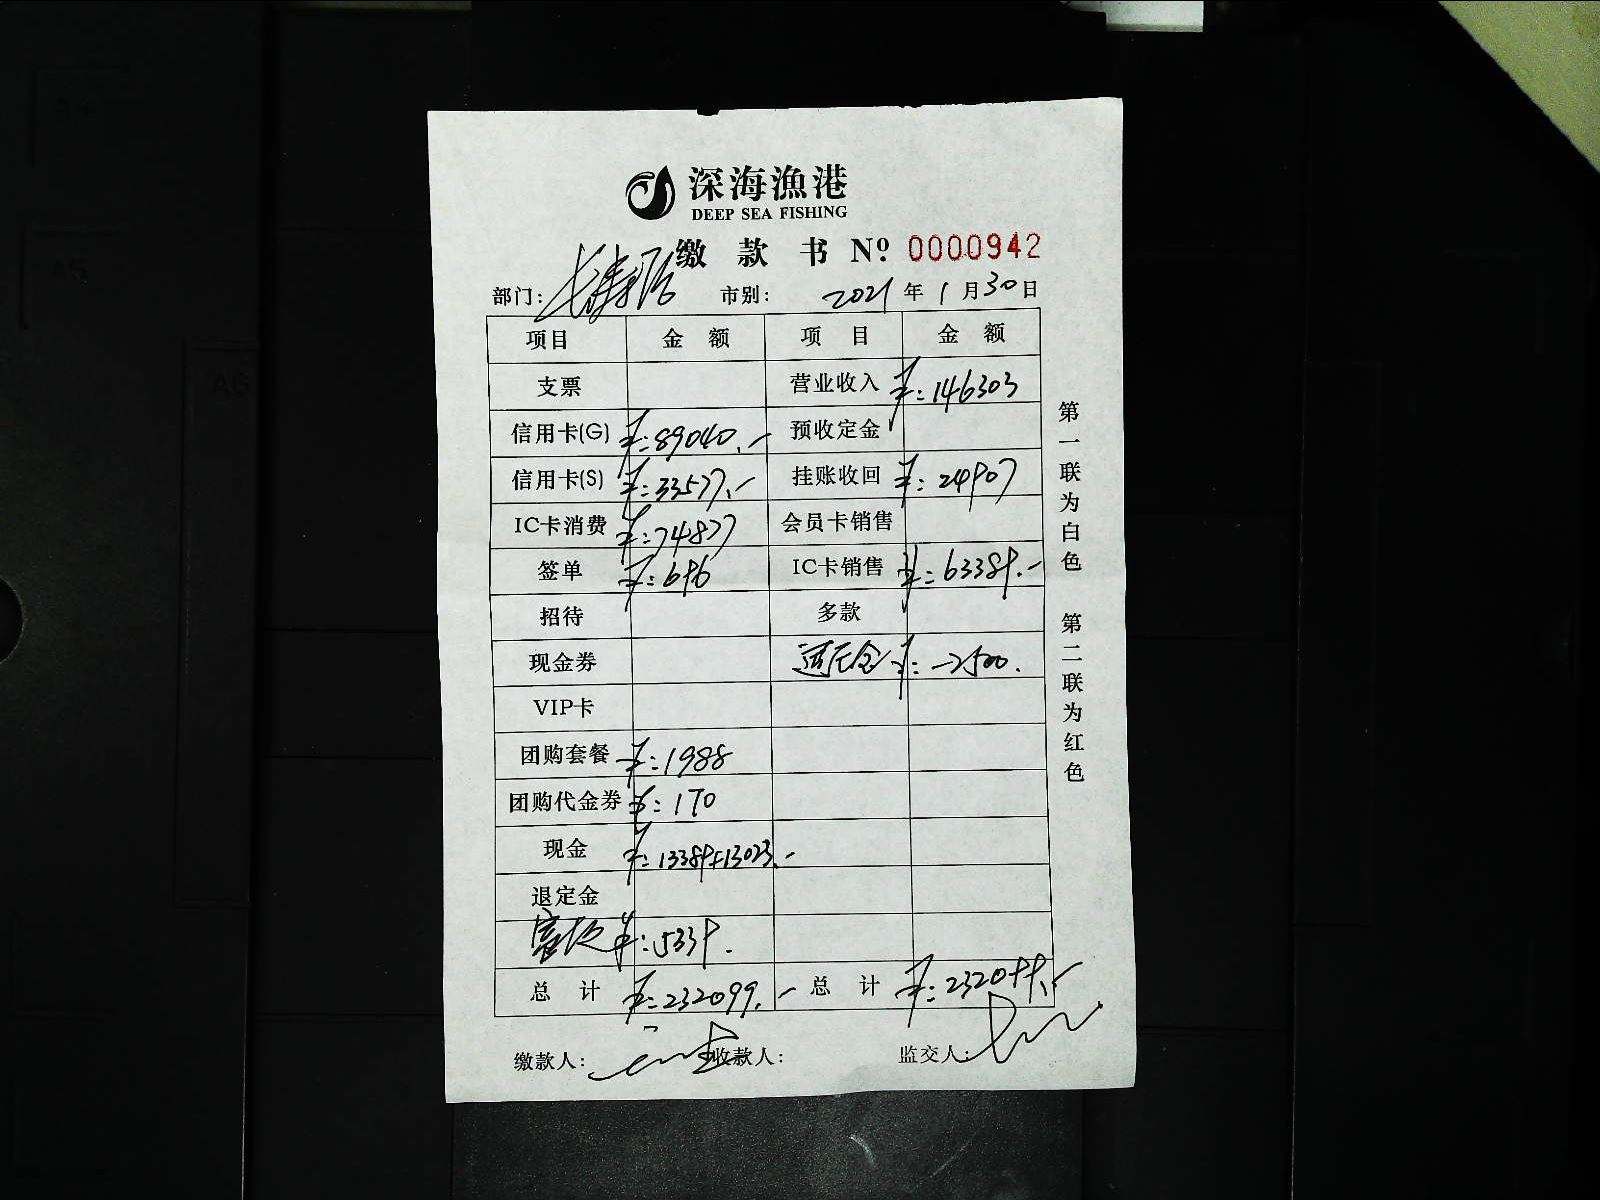 深海漁港
DEEP SEA FISHING
缴款书 Nº: 0000942
部门: 市别: 2021年1月30日
项目 金额 项目 金额
支票 营业收入 ¥:146303
信用卡(G) ¥:89040.- 预收定金
信用卡(S) ¥:33577.- 挂账收回 ¥:24907
IC卡消费 ¥:74877 会员卡销售
签单 ¥:696 IC卡销售 ¥:63389.-
招待 多款
现金券 退定金 ¥:-2500.
VIP卡
团购套餐 ¥:1988
团购代金券 ¥:170
现金 ¥:13389+13023.-
退定金
¥:5339.
总计 ¥:232099.- 总计 ¥:232099.-
缴款人: 收款人: 监交人:
第一联为白色 第二联为红色